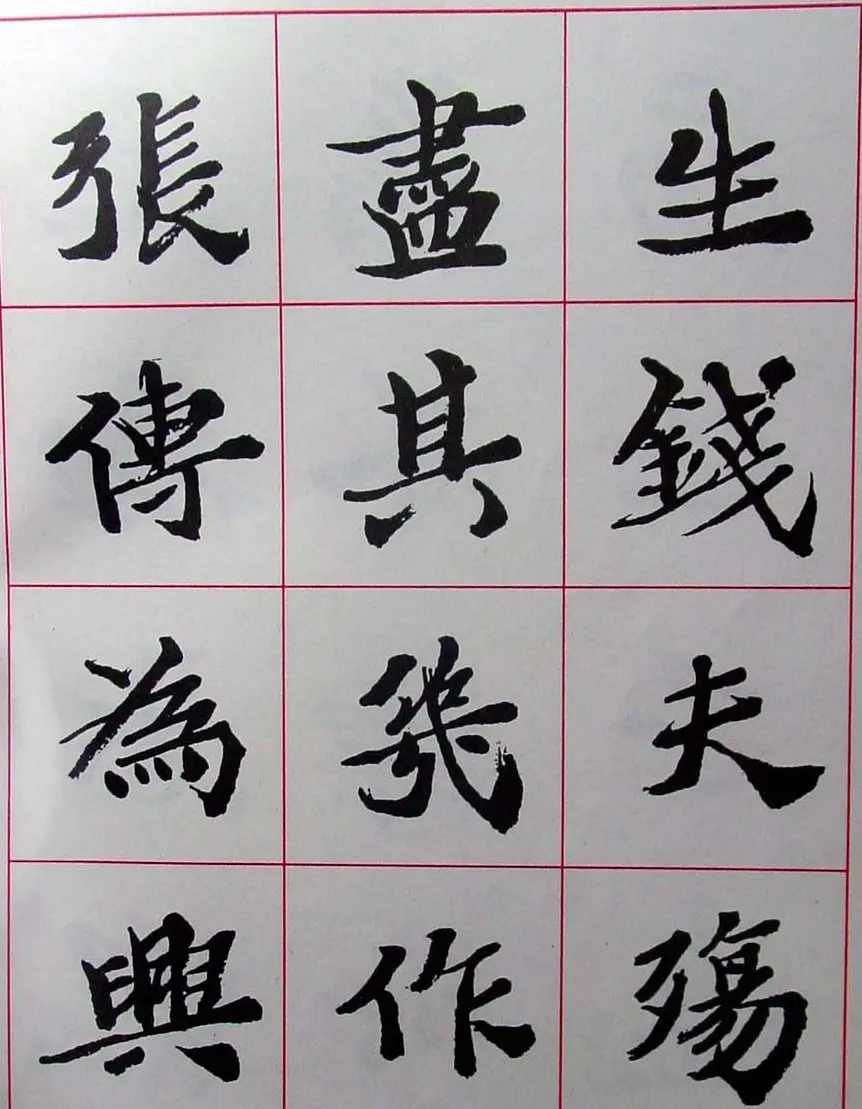 生錢夫殤
盡其幾作
張傳為興